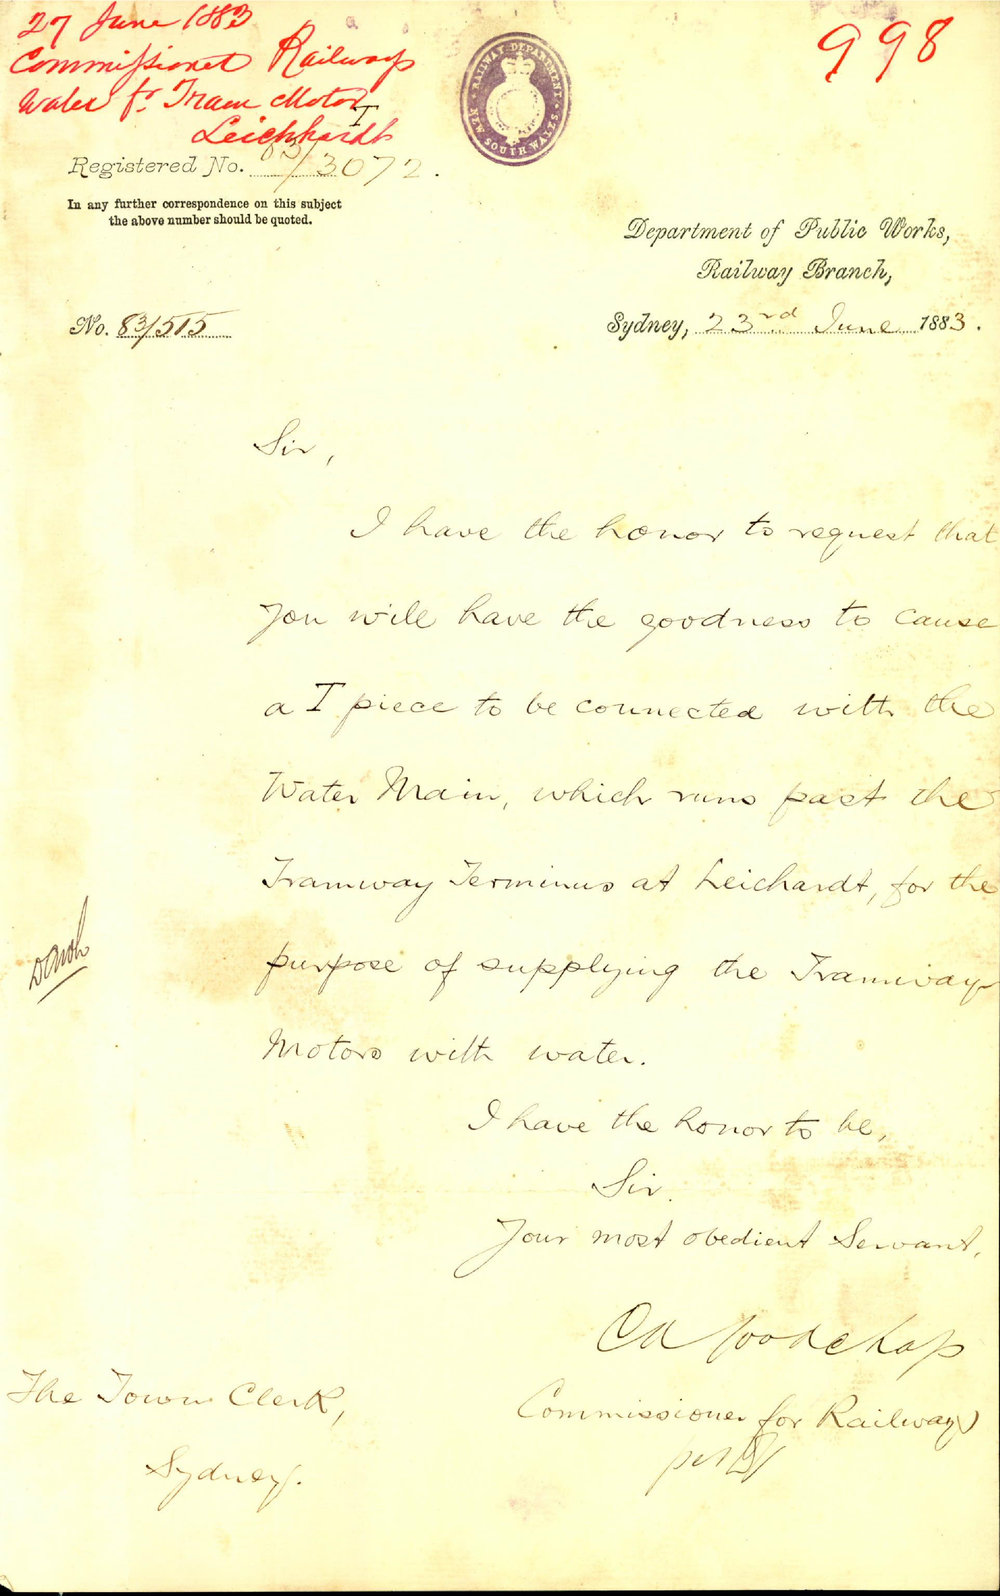 27 June 1883
Commissioner Railways
Water fr Tram Motor
Leichhardt
998
RAILWAY DEPARTMENT
NEW SOUTH WALES
Registered No. 83/3072.
In any further correspondence on this subject
the above number should be quoted.
Department of Public Works,
Railway Branch,
No. 83/515
Sydney, 23rd June 1883.
Sir,
I have the honor to request that
you will have the goodness to cause
a T piece to be connected with the
Water Main, which runs past the
Tramway Terminus at Leichardt, for the
purpose of supplying the Tramway
Motors with water.
I have the honor to be,
Sir.
Your most obedient Servant,
Ch A Goodchap
Commissioner for Railways
The Town Clerk,
Sydney.